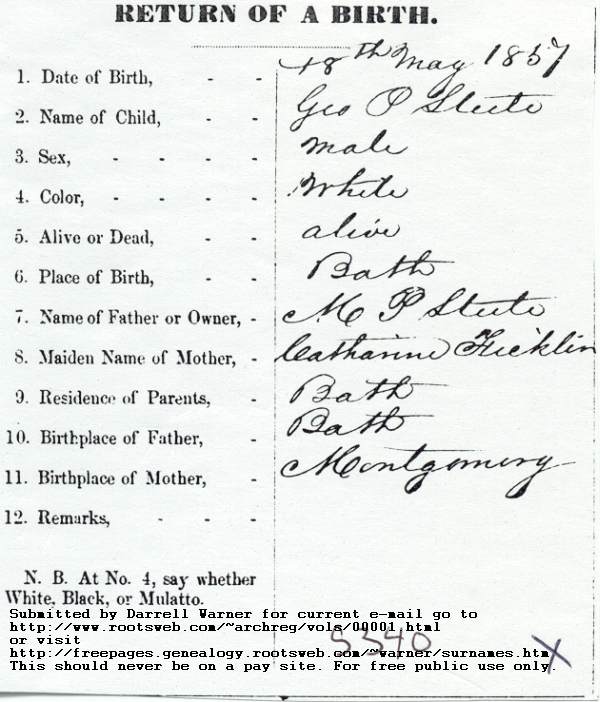 RETURN OF A BIRTH.
1. Date of Birth, - - 18th May 1857
2. Name of Child, - - Geo P Steele
3. Sex, - - - - male
4. Color, - - - - White
5. Alive or Dead, - - alive
6. Place of Birth, - - Bath
7. Name of Father or Owner, - M P Steele
8. Maiden Name of Mother, - Catharine Ficklin
9. Residence of Parents, - Bath
10. Birthplace of Father, - Bath
11. Birthplace of Mother, - Montgomery
12. Remarks, - - -
N. B. At No. 4, say whether
White, Black, or Mulatto.
Submitted by Darrell Warner for current e-mail go to
http://www.rootsweb.com/~archreg/vols/00001.html
or visit
5340
http://freepages.genealogy.rootsweb.com/~warner/surnames.htm
This should never be on a pay site. For free public use only.
X